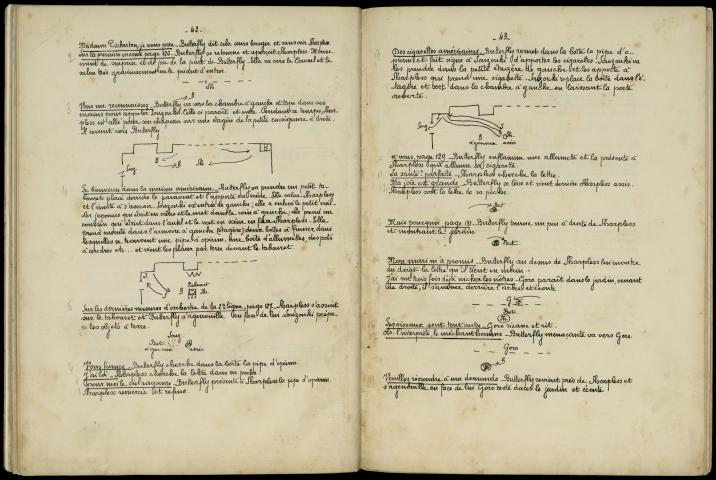 - 42 -
Madame Pinkerton, je vous prie - Butterfly dit cela sans bouger et sans voir Sharpless
Sur la première mesure page 126 - Butterfly se retourne et aperçoit Sharpless. Mouve-
ment de surprise et de joie de la part de Butterfly. Elle va vers le Consul et le
salue très gracieusement en le priant d'entrer.
B
Sh.
Vous me reconnaissez - Butterfly va vers la chambre à gauche et tape dans ses
mains pour appeler Souzouki. Celle ci paraît et entre. Pendant ce temps, Shar-
pless est allé poser son chapeau sur une étagère de la petite encoignure à droite.
Il revient vers Butterfly
Souz.
B
B
Sh.
Bienvenu dans la maison américaine - Butterfly va prendre un petit ta-
bouret placé derrière le paravent et l'apporte au centre. Elle salue Sharpless
et l'invite à s'asseoir. Souzouki est entrée de gauche; elle a enlevé le petit
et le met dans la
à gauche; elle prend
et le met en scène en face Sharpless. Elle
prend ensuite dans l'armoire à gauche (étagère) deux boîtes à fumer, dans
lesquelles se trouvent une pipe à opium, une boîte d'allumettes, des pots
à cendres etc... et vient les placer par terre devant le tabouret.
Tabouret
Sh.
B
Sur les dernières mesures d'orchestre de la 2e ligne, page 127 - Sharpless s'assoit
sur le tabouret et Butterfly s'agenouille en face de lui. Souzouki prépa-
re les objets à terre -
Souz.
But.
Sh.
assis
Vous fumez - Butterfly cherche dans la boîte la pipe d'opium
J'ai là - Sharpless cherche la lettre dans sa poche
Butterfly présente à Sharpless la pipe d'opium
Sharpless remercie et refuse.
- 43 -
Des cigarettes américaines - Butterfly remet dans la boîte la pipe d'o-
pium et fait signe à Souzouki d'apporter les cigarettes. Souzouki va
les prendre dans la petite étagère de gauche et les apporte à
Sharpless qui prend une cigarette. Souzouki replace la boîte dans l'é-
tagère et sort dans la chambre à gauche en laissant la porte
ouverte.
Souz.
B
à genoux
Sh.
assis
à vous, page 129 - Butterfly enflamme une allumette et la présente à
Sharpless qui allume sa cigarette.
Sa santé? parfaite - Sharpless cherche la lettre.
Ma joie est grande - Butterfly se lève et vient derrière Sharpless assis.
Sharpless sort la lettre de sa poche.
But.
Sh.
Mais pourquoi page 131 - Butterfly tourne un peu à droite de Sharpless
et montrant le jardin
Sh. But.
Mon mari m'a promis - Butterfly au dessus de Sharpless lui montre
du doigt la lettre qu'il tient en main -
J'ai vu trois fois déjà nicher les nôtres - Goro paraît dans le jardin, venant
de droite, il s'avance derrière l'arbre et écoute
G
But.
Sh.
Les oiseaux sont tout autre - Goro ricane et rit.
Oh! l'interprète, le méchant homme - Butterfly menaçante va vers Goro.
Goro
Sh. B
Veuillez répondre à ma demande - Butterfly revient près de Sharpless et
s'agenouille en face de lui. Goro reste dans le jardin et écoute.